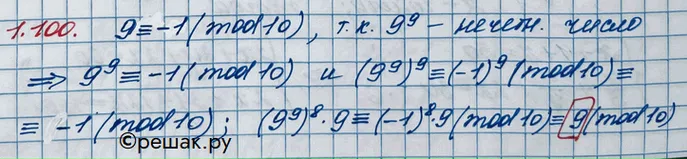 1.100. 9≡-1(mod10), т.к. 9⁹ - нечетн. число
⇒ 9⁹≡-1(mod10) и (9⁹)⁹≡(-1)⁹(mod10)≡
≡ -1(mod10); (9⁹)⁸·9≡(-1)⁸·9(mod10)≡9(mod10)
©решак.ру